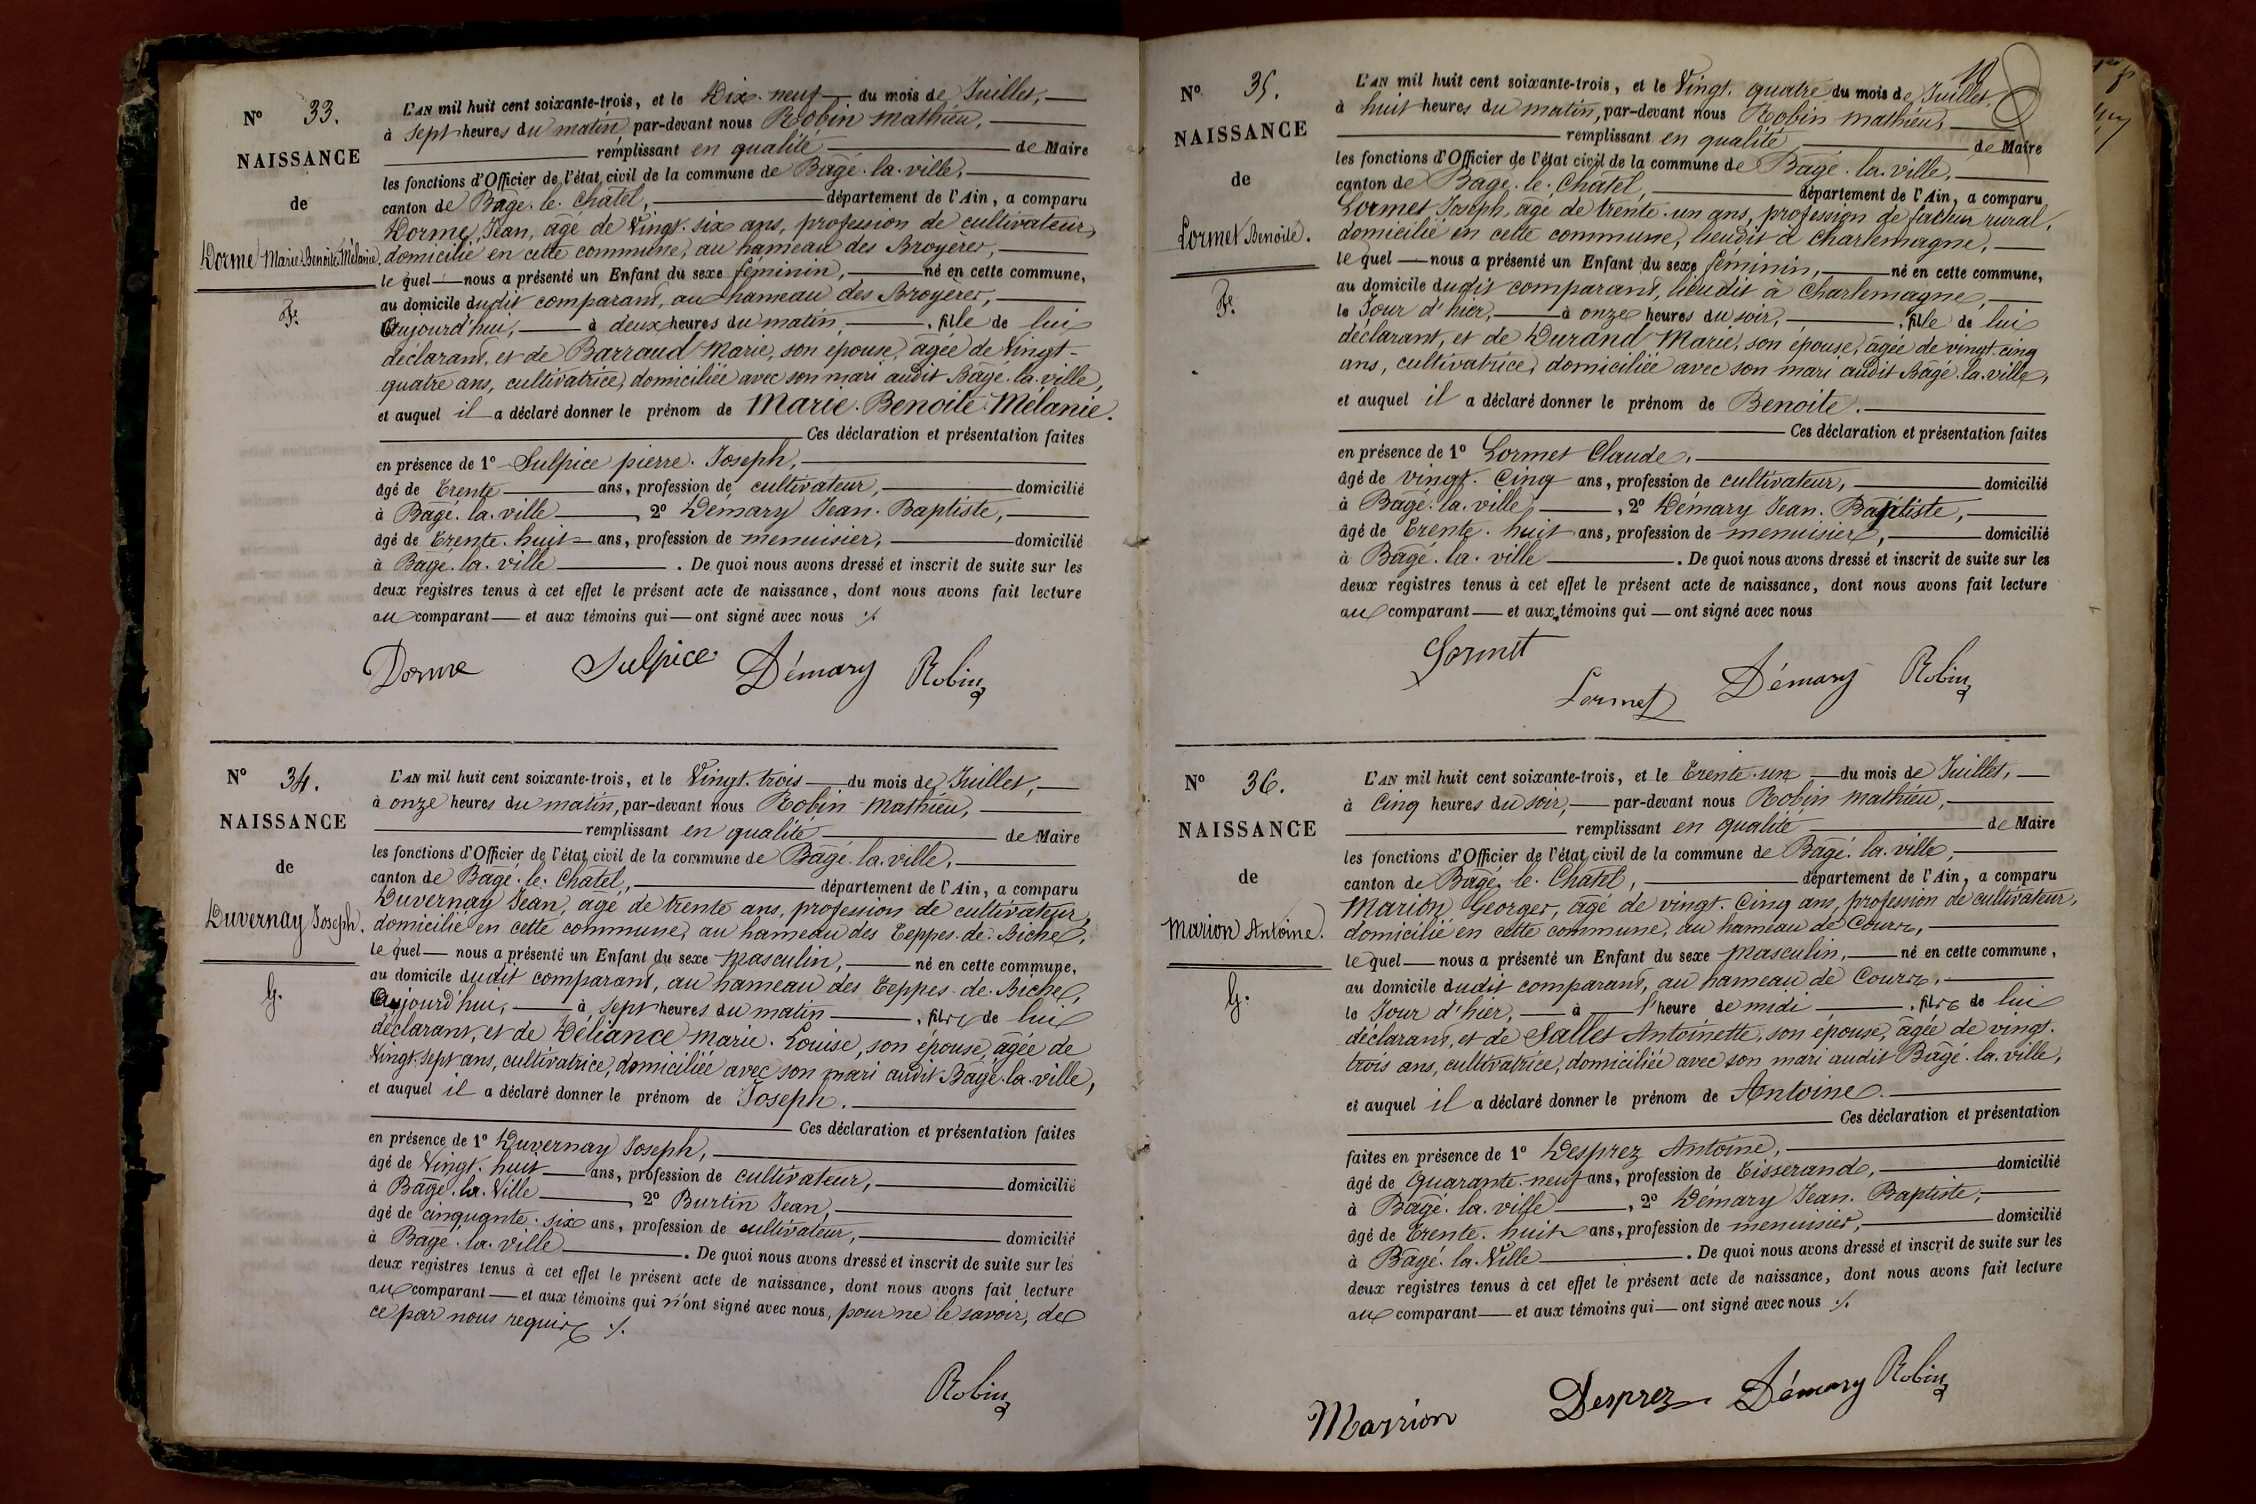 N° 33.
NAISSANCE
de
Dorme Marie-Benoite-Mélanie.
F.
L'AN mil huit cent soixante-trois, et le Dix-neuf du mois de Juillet,
à sept heures du matin par-devant nous Robin Mathieu,
remplissant en qualité de Maire
les fonctions d'Officier de l'état civil de la commune de Bâgé-la-ville,
canton de Bâgé-le-Châtel, département de l'Ain, a comparu
Dorme, Jean, âgé de Vingt-six ans, profession de cultivateur,
domicilié en cette commune, au hameau des Broyères,
le quel nous a présenté un Enfant du sexe féminin, né en cette commune,
au domicile dudit comparant, au hameau des Broyères,
Aujourd'hui, à deux heures du matin, , fille de lui
déclarant, et de Barraud Marie, son épouse, âgée de Vingt-
quatre ans, cultivatrice, domiciliée avec son mari audit Bâgé-la-ville,
et auquel il a déclaré donner le prénom de Marie-Benoite-Mélanie.
Ces déclaration et présentation faites
en présence de 1° Sulpice pierre-Joseph,
âgé de Trente ans, profession de cultivateur, domicilié
à Bâgé-la-ville , 2° Démary Jean-Baptiste,
âgé de Trente-huit ans, profession de menuisier, domicilié
à Bâgé-la-ville . De quoi nous avons dressé et inscrit de suite sur les
deux registres tenus à cet effet le présent acte de naissance, dont nous avons fait lecture
au comparant et aux témoins qui ont signé avec nous ./.
Dorme Sulpice Démary Robin
N° 34.
NAISSANCE
de
Duvernay Joseph.
G.
L'AN mil huit cent soixante-trois, et le Vingt-trois du mois de Juillet,
à onze heures du matin, par-devant nous Robin Mathieu,
remplissant en qualité de Maire
les fonctions d'Officier de l'état civil de la commune de Bâgé-la-ville,
canton de Bâgé-le-Châtel, département de l'Ain, a comparu
Duvernay Jean, âgé de trente ans, profession de cultivateur,
domicilié en cette commune, au hameau des Teppes-de-Biche,
le quel nous a présenté un Enfant du sexe masculin, né en cette commune,
au domicile dudit comparant, au hameau des Teppes-de-Biche,
Aujourd'hui, à sept heures du matin , fils de lui
déclarant, et de Déliance Marie-Louise, son épouse, âgée de
Vingt-sept ans, cultivatrice, domiciliée avec son mari audit Bâgé-la-ville,
et auquel il a déclaré donner le prénom de Joseph.
Ces déclaration et présentation faites
en présence de 1° Duvernay Joseph,
âgé de Vingt-huit ans, profession de cultivateur, domicilié
à Bâgé-la-Ville , 2° Burtin Jean,
âgé de cinquante-six ans, profession de cultivateur, domicilié
à Bâgé-la-ville . De quoi nous avons dressé et inscrit de suite sur les
deux registres tenus à cet effet le présent acte de naissance, dont nous avons fait lecture
au comparant et aux témoins qui n'ont signé avec nous, pour ne le savoir, de
ce par nous requis ./.
Robin
10
N° 35.
NAISSANCE
de
Lormet Benoite.
F.
L'AN mil huit cent soixante-trois, et le Vingt-quatre du mois de Juillet
à huit heures du matin, par-devant nous Robin Mathieu,
remplissant en qualité de Maire
les fonctions d'Officier de l'état civil de la commune de Bâgé-la-ville,
canton de Bâgé-le-Châtel, département de l'Ain, a comparu
Lormet Joseph, âgé de trente-un ans, profession de facteur rural,
domicilié en cette commune, lieudit à Charlemagne,
le quel nous a présenté un Enfant du sexe féminin, né en cette commune,
au domicile dudit comparant, lieudit à Charlemagne,
le Jour d'hier, à onze heures du soir, , fille de lui
déclarant, et de Durand Marie, son épouse, âgée de vingt-cinq
ans, cultivatrice, domiciliée avec son mari audit Bâgé-la-ville,
et auquel il a déclaré donner le prénom de Benoite.
Ces déclaration et présentation faites
en présence de 1° Lormet Claude,
âgé de vingt-cinq ans, profession de cultivateur, domicilié
à Bâgé-la-ville , 2° Démary Jean-Baptiste,
âgé de Trente-huit ans, profession de menuisier, domicilié
à Bâgé-la-ville . De quoi nous avons dressé et inscrit de suite sur les
deux registres tenus à cet effet le présent acte de naissance, dont nous avons fait lecture
au comparant et aux témoins qui ont signé avec nous
Lormet Lormet Démary Robin
N° 36.
NAISSANCE
de
Marion Antoine.
G.
L'AN mil huit cent soixante-trois, et le Trente-un du mois de Juillet,
à Cinq heures du soir, par-devant nous Robin Mathieu,
remplissant en qualité de Maire
les fonctions d'Officier de l'état civil de la commune de Bâgé-la-ville,
canton de Bâgé-le-Châtel, département de l'Ain, a comparu
Marion Georges, âgé de vingt-cinq ans, profession de cultivateur,
domicilié en cette commune, au hameau de Cours,
le quel nous a présenté un Enfant du sexe masculin, né en cette commune,
au domicile dudit comparant, au hameau de Cours,
le Jour d'hier, à l'heure de midi , fils de lui
déclarant, et de Sallet Antoinette, son épouse, âgée de vingt-
trois ans, cultivatrice, domiciliée avec son mari audit Bâgé-la-ville,
et auquel il a déclaré donner le prénom de Antoine.
Ces déclaration et présentation
faites en présence de 1° Desprez Antoine,
âgé de Quarante-neuf ans, profession de Tisserand, domicilié
à Bâgé-la-ville , 2° Démary Jean-Baptiste,
âgé de Trente-huit ans, profession de menuisier, domicilié
à Bâgé-la-Ville . De quoi nous avons dressé et inscrit de suite sur les
deux registres tenus à cet effet le présent acte de naissance, dont nous avons fait lecture
au comparant et aux témoins qui ont signé avec nous ./.
Marion Desprez Démary Robin